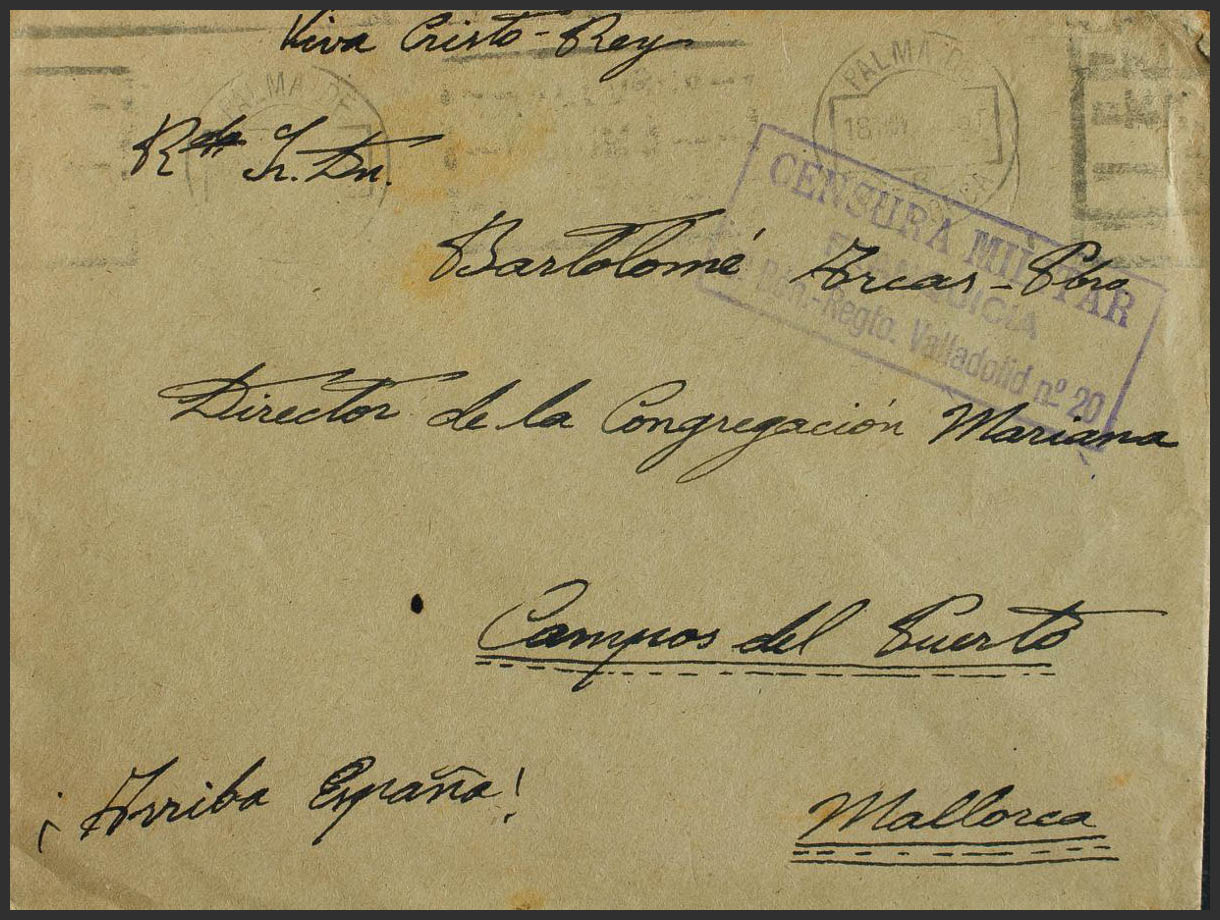 Viva Cristo-Rey
PALMA DE
PALMA DE
Rdo Sr. Dn.
CENSURA MILITAR
Bartolomé Arcas - Pbro
Bón.-Regto. Valladolid nº 20
Director de la Congregación Mariana
Campos del Puerto
¡Arriba España!
Mallorca